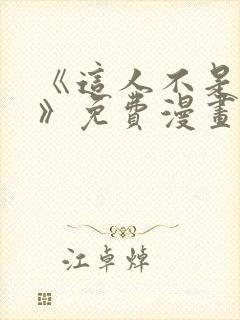 《這人不是
》免費漫畫
江卓焯